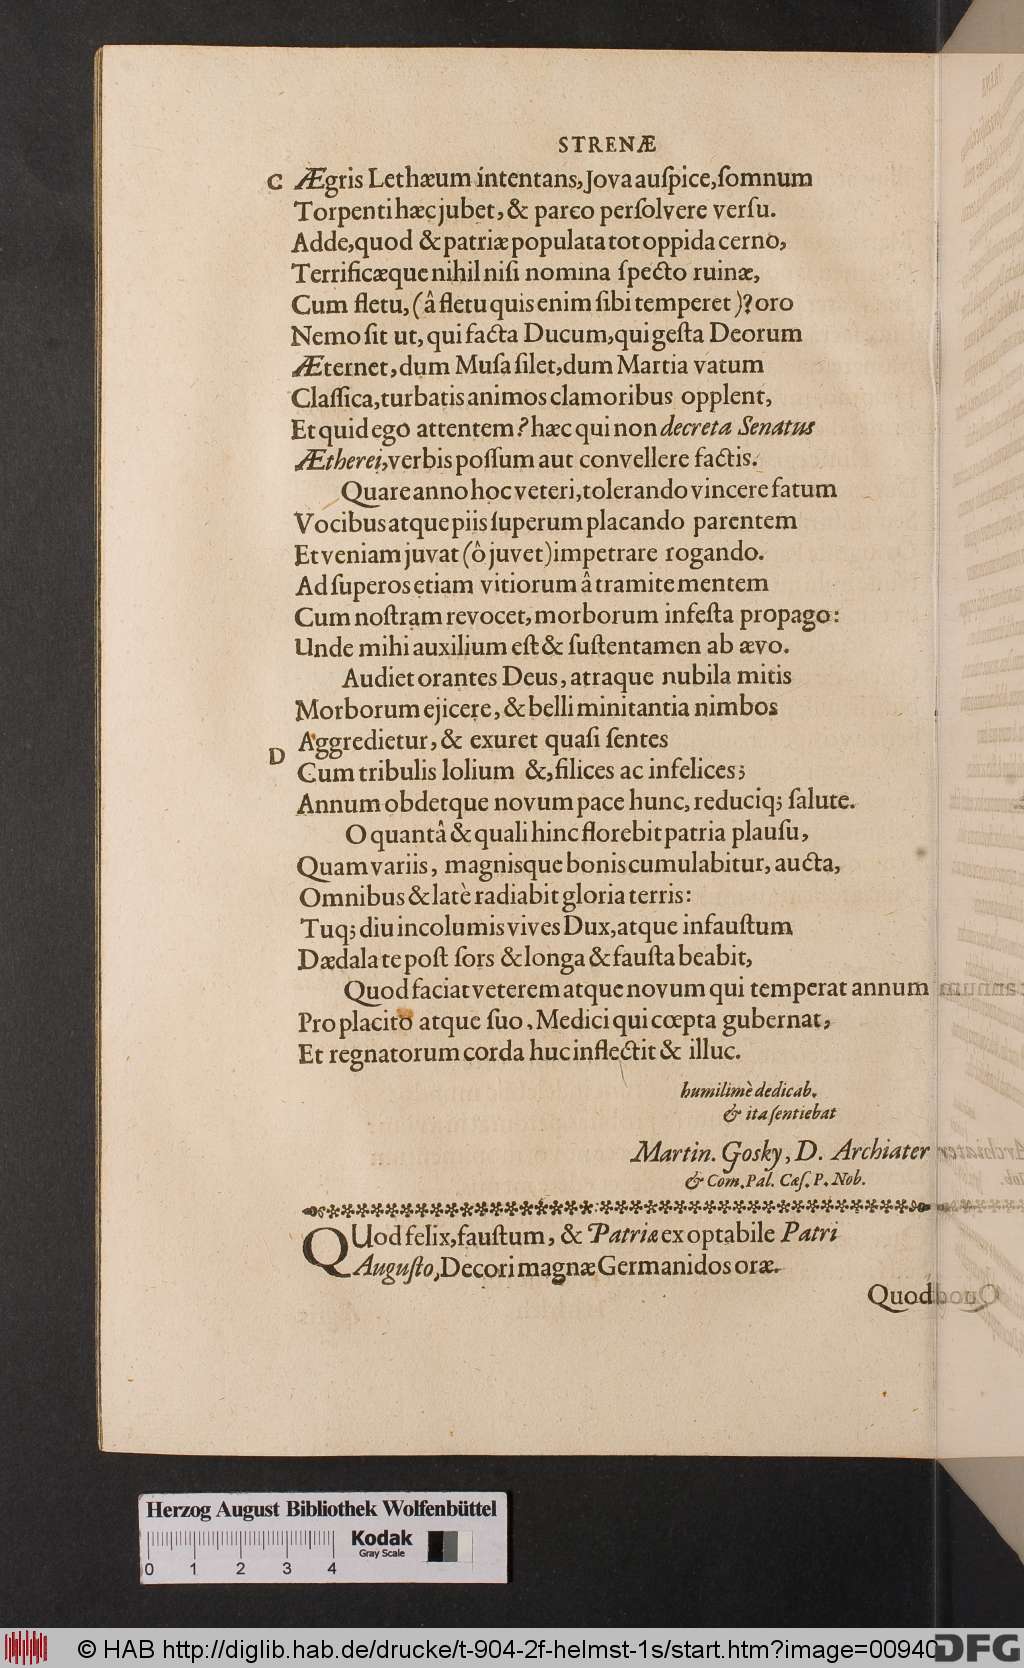 STRENÆ
C Ægris Lethæum intentans, Jova auſpice, ſomnum
Torpenti hæc jubet, & pareo perſolvere verſu.
Adde, quod & patriæ populata tot oppida cerno,
Terrificæque nihil niſi nomina ſpecto ruinæ,
Cum fletu, (â fletu quis enim ſibi temperet)? oro
Nemo ſit ut, qui facta Ducum, qui geſta Deorum
Æternet, dum Muſa ſilet, dum Martia vatum
Claſſica, turbatis animos clamoribus opplent,
Et quid ego attentem? hæc qui non decreta Senatus
Ætherei, verbis poſſum aut convellere factis.
Quare anno hoc veteri, tolerando vincere fatum
Vocibus atque piis ſuperum placando parentem
Et veniam juvat (ô juvet) impetrare rogando.
Ad ſuperos etiam vitiorum â tramite mentem
Cum noſtram revocet, morborum infeſta propago:
Unde mihi auxilium eſt & ſuſtentamen ab ævo.
Audiet orantes Deus, atraque nubila mitis
Morborum ejicere, & belli minitantia nimbos
D Aggredietur, & exuret quaſi ſentes
Cum tribulis lolium &, filices ac infelices;
Annum obdetque novum pace hunc, reduciq; ſalute.
O quantâ & quali hinc florebit patria plauſu,
Quam variis, magnisque bonis cumulabitur, aucta,
Omnibus & latè radiabit gloria terris:
Tuq; diu incolumis vives Dux, atque infauſtum
Dædala te poſt ſors & longa & fauſta beabit,
Quod faciat veterem atque novum qui temperat annum
Pro placito atque ſuo, Medici qui cœpta gubernat,
Et regnatorum corda huc inflectit & illuc.
humilimè dedicab.
& ita ſentiebat
Martin. Gosky, D. Archiater
& Com. Pal. Cæſ. P. Nob.
QUod felix, fauſtum, & Patriæ exoptabile Patri
Auguſto, Decori magnæ Germanidos oræ.
Quod
Herzog August Bibliothek Wolfenbüttel
Kodak
Gray Scale
0 1 2 3 4
© HAB http://diglib.hab.de/drucke/t-904-2f-helmst-1s/start.htm?image=00940
DFG